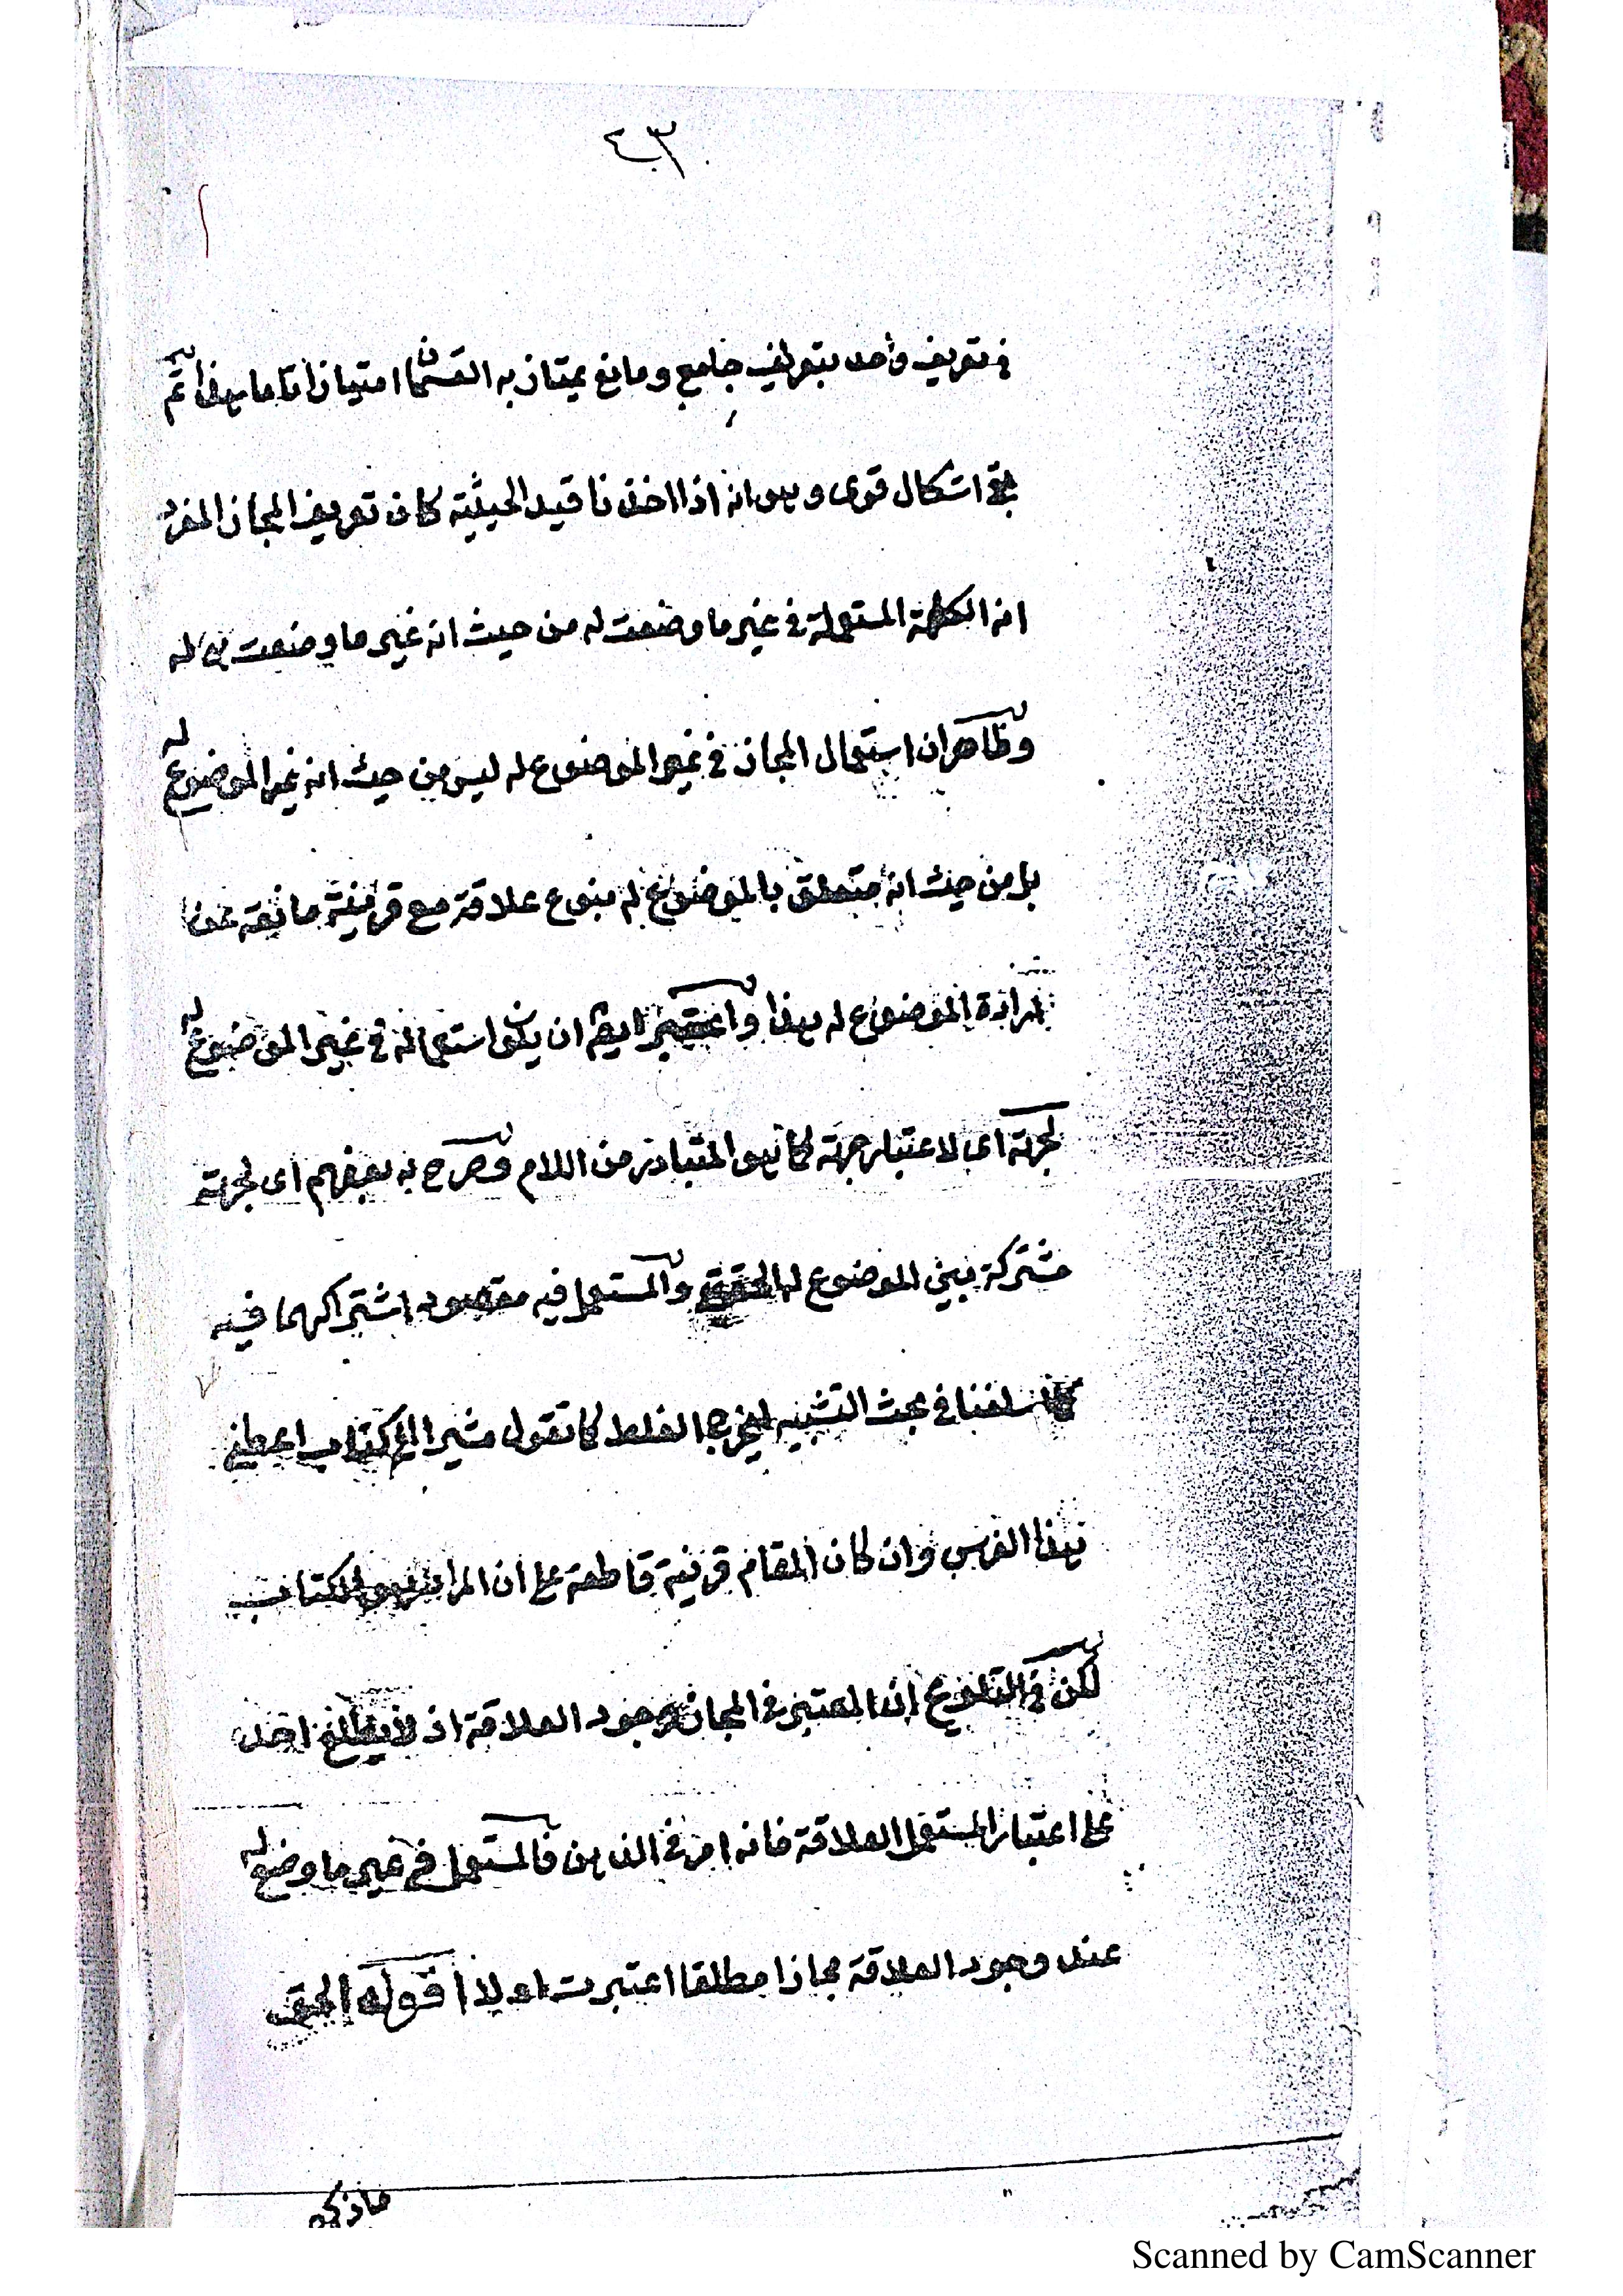 ٤٣
في تعريف واحد بتعريف جامع ومانع يمتاز به القسمان امتيازا تاما هذا ثم
بقي اشكال قوى وهو انه اذا اخذنا قيد الحيثية كان تعريف المجاز المفرد
انه الكلمة المستعملة في غير ما وضعت له من حيث انه غير ما وضعت له
وظاهر ان استعمال المجاز في غير الموضوع له ليس من حيث انه غير الموضوع له
بل من حيث انه متعلق بالموضوع له بنوع علاقة مع قرينة مانعة عن
ارادة الموضوع له هذا واعتبر ايضا ان يكون استعماله في غير الموضوع له
لجهة اى لاعتبار جهة كما هو المتبادر من اللام وصرح به بعضهم اى لجهة
مشتركة بين الموضوع له والمستعمل فيه مقصود اشتراكهما فيه
كما اسلفنا في بحث التشبيه ليخرج الغلط كما تقول مشيرا الى كتاب اعطني
هذا الفرس وان كان المقام قرينة قاطعة على ان المراد هو الكتاب
لكن في التلويح ان المعتبر في المجاز وجود العلاقة اذ لا يطلع احد
على اعتبار المستعمل العلاقة فانه امر في الذهن فالمستعمل في غير ما وضع له
عند وجود العلاقة مجازا مطلقا اعتبرت اولا اقول الحق
ما ذكره
Scanned by CamScanner